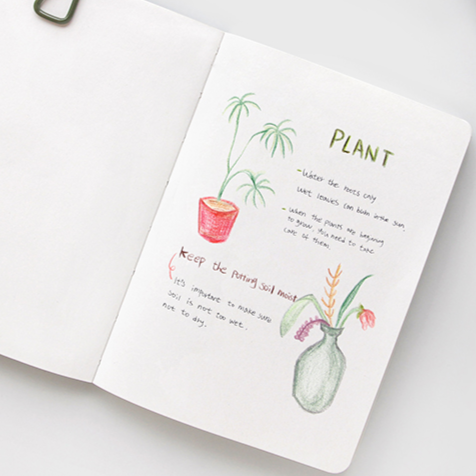 PLANT
- Water the roots only
Wet leavies can burn in the sun.
- When the plants are beginning
to grow, you need to take
care of them
Keep the Potting Soil moist
It's important to make sure
soil is not too wet.
not to dry.